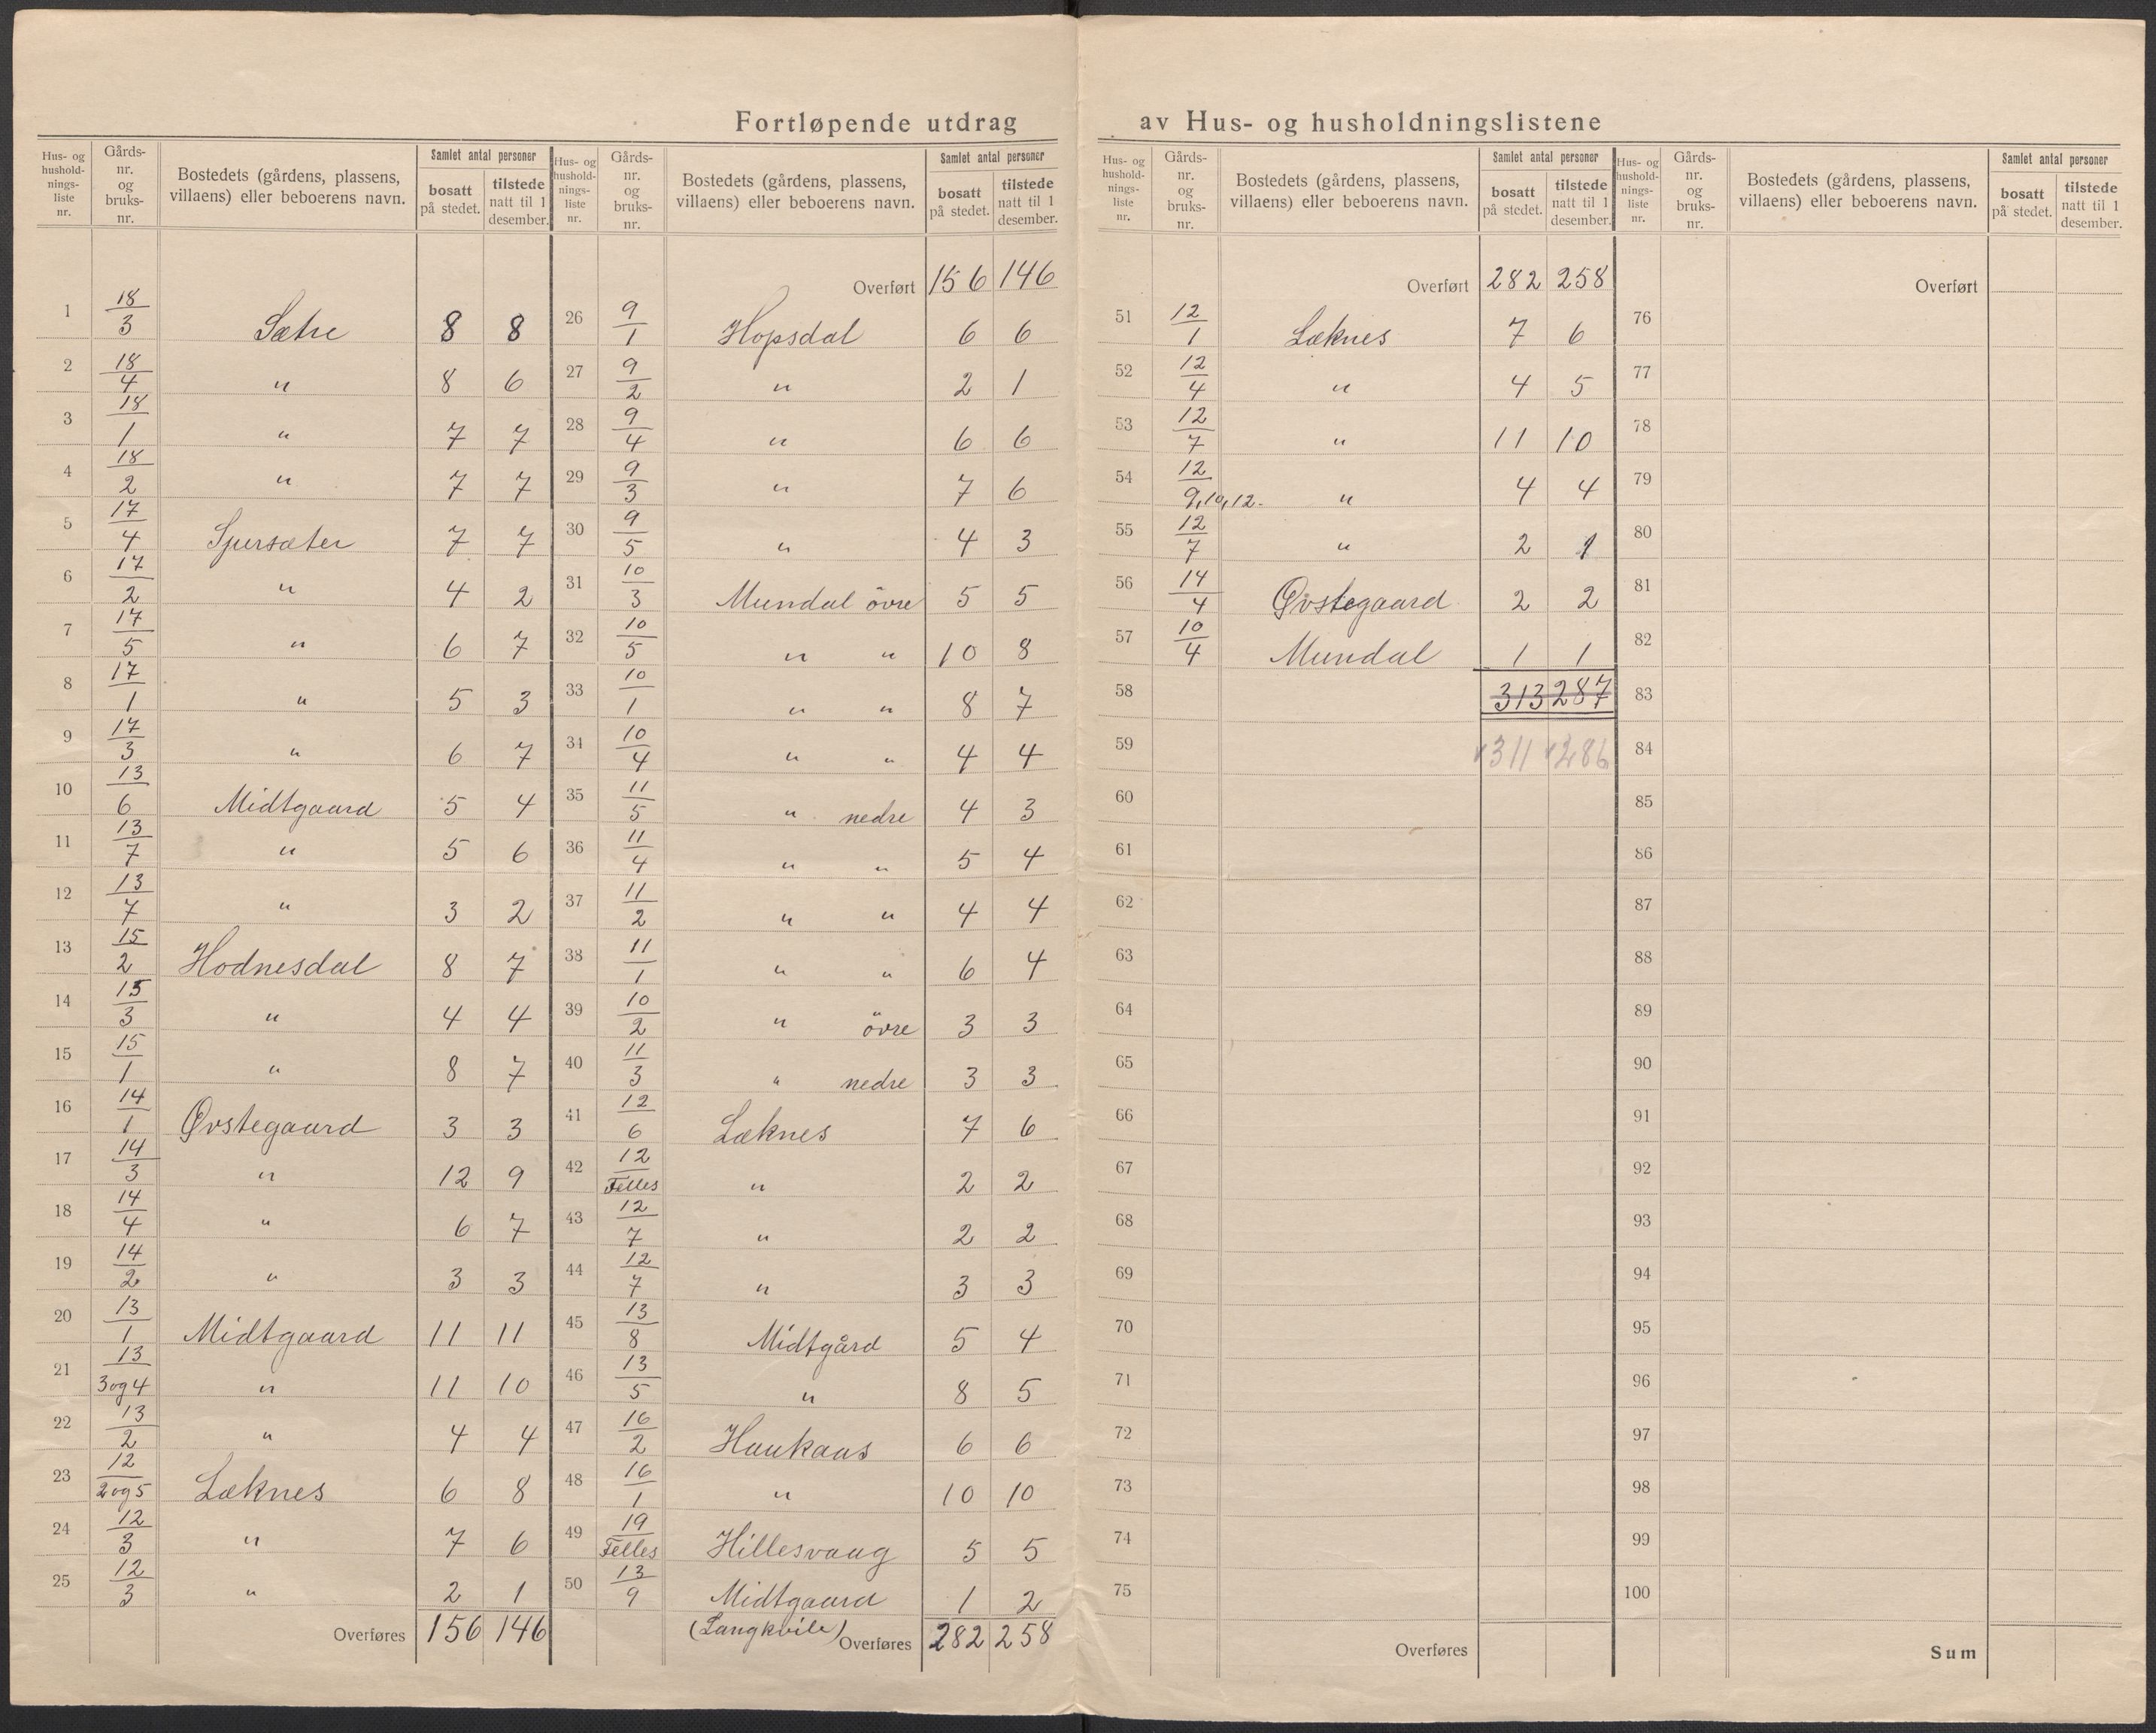 Fortløpende utdrag av Hus- og husholdningslistene
Hus- og hushold-nings-liste nr. | Gårds-nr. og bruks-nr. | Bostedets (gårdens, plassens, villaens) eller beboerens navn. | Samlet antal personer | bosatt på stedet. | tilstede natt til 1 desember.
1 18/3 Sætre 8 8
2 18/4 " 8 6
3 18/1 " 7 7
4 18/2 " 7 7
5 17/4 Sjursæter 7 7
6 17/2 " 4 2
7 17/5 " 6 7
8 17/1 " 5 3
9 17/3 " 6 7
10 13/6 Midtgaard 5 4
11 13/7 " 5 6
12 13/7 " 3 2
13 15/2 Hodnesdal 8 7
14 15/3 " 4 4
15 15/1 " 8 7
16 14/1 Øvstegaard 3 3
17 14/3 " 12 9
18 14/4 " 6 7
19 14/2 " 3 3
20 13/1 Midtgaard 11 11
21 13/3 og 4 " 11 10
22 13/2 " 4 4
23 12/2 og 5 Læknes 6 8
24 12/3 " 7 6
25 12/3 " 2 1
Overføres 156 146
Hus- og hushold-nings-liste nr. | Gårds-nr. og bruks-nr. | Bostedets (gårdens, plassens, villaens) eller beboerens navn. | Samlet antal personer | bosatt på stedet. | tilstede natt til 1 desember.
Overført 156 146
26 9/1 Hopsdal 6 6
27 9/2 " 2 1
28 9/4 " 6 6
29 9/3 " 7 6
30 9/5 " 4 3
31 10/3 Mundal övre 5 5
32 10/5 " " 10 8
33 10/1 " " 8 7
34 10/4 " " 4 4
35 11/5 " nedre 4 3
36 11/4 " " 5 4
37 11/2 " " 4 4
38 11/1 " " 6 4
39 10/2 " övre 3 3
40 11/3 " nedre 3 3
41 12/6 Læknes 7 6
42 12/Felles " 2 2
43 12/7 " 2 2
44 12/7 " 3 3
45 13/8 Midtgård 5 4
46 13/5 " 8 5
47 16/2 Haukaas 6 6
48 16/1 " 10 10
49 19/Felles Hillesvaag 5 5
50 13/9 Midtgaard 1 2
(Langkvile)
Overføres 282 258
Hus- og hushold-nings-liste nr. | Gårds-nr. og bruks-nr. | Bostedets (gårdens, plassens, villaens) eller beboerens navn. | Samlet antal personer | bosatt på stedet. | tilstede natt til 1 desember.
Overført 282 258
51 12/1 Læknes 7 6
52 12/4 " 4 5
53 12/7 " 11 10
54 12/9,10,12. " 4 4
55 12/7 " 2 1
56 14/4 Øvstegaard 2 2
57 10/4 Mundal 1 1
58 313 287
59 311 286
60
61
62
63
64
65
66
67
68
69
70
71
72
73
74
75
Overføres
Hus- og hushold-nings-liste nr. | Gårds-nr. og bruks-nr. | Bostedets (gårdens, plassens, villaens) eller beboerens navn. | Samlet antal personer | bosatt på stedet. | tilstede natt til 1 desember.
Overført
76
77
78
79
80
81
82
83
84
85
86
87
88
89
90
91
92
93
94
95
96
97
98
99
100
Sum